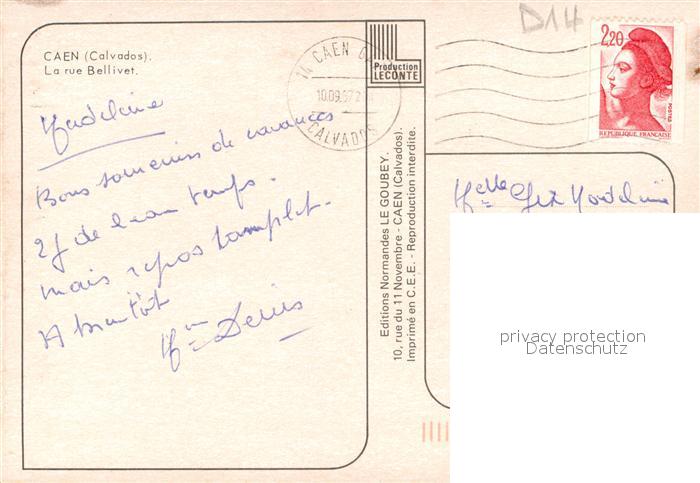 CAEN (Calvados).
La rue Bellivet.
Madeleine
Bons souvenirs de vacances
2 j de beau temps.
mais repos complet.
A bientôt
Mme Denis
Production
LECONTE
Editions Normandes LE GOUBEY.
10, rue du 11 Novembre - CAEN (Calvados).
Imprimé en C.E.E. - Reproduction interdite.
14 CAEN
10.09.87
CALVADOS
D14
2,20
POSTES
REPUBLIQUE FRANÇAISE
Melle Madeleine
privacy protection
Datenschutz